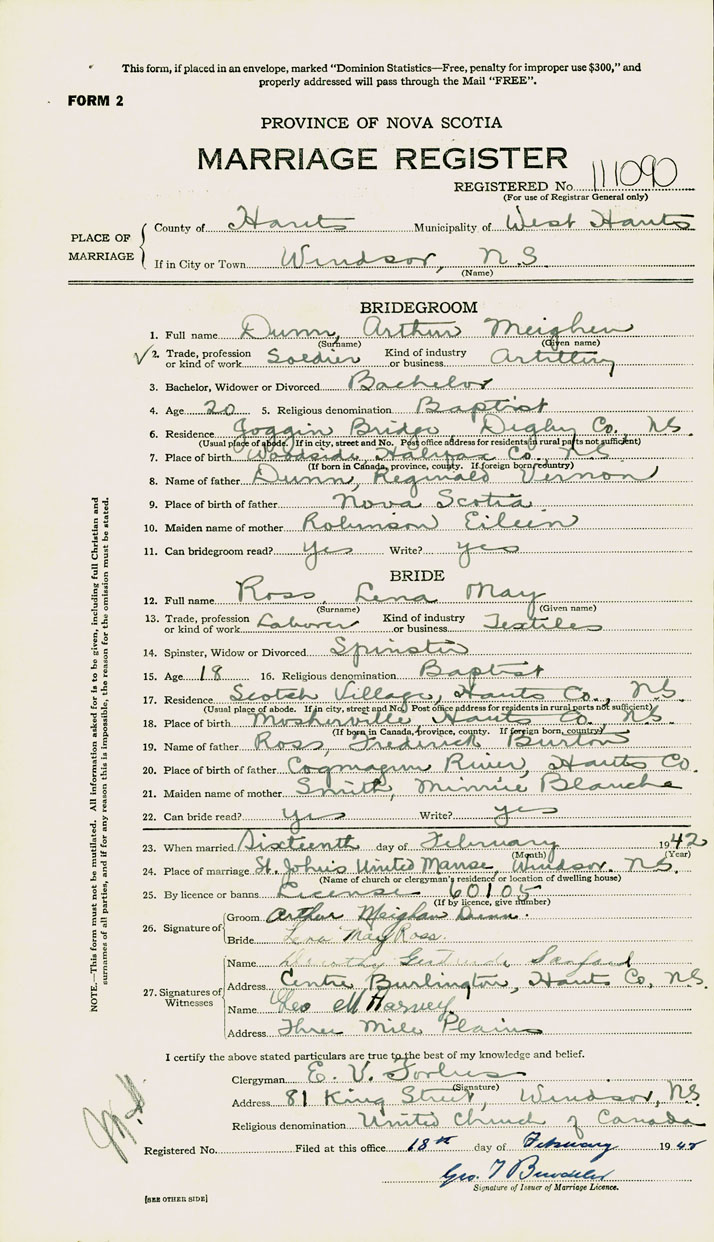 This form, if placed in an envelope, marked “Dominion Statistics—Free, penalty for improper use $300,” and
properly addressed will pass through the Mail “FREE”.
FORM 2
PROVINCE OF NOVA SCOTIA
MARRIAGE REGISTER
REGISTERED No. 111090
(For use of Registrar General only)
PLACE OF MARRIAGE
County of Hants Municipality of West Hants
If in City or Town Windsor, N.S.
(Name)
BRIDEGROOM
1. Full name Dunn, Arthur Meighen
(Surname) (Given name)
2. Trade, profession or kind of work Soldier Kind of industry or business Artillery
3. Bachelor, Widower or Divorced Bachelor
4. Age 20 5. Religious denomination Baptist
6. Residence Joggin Bridge, Digby Co., N.S.
(Usual place of abode. If in city, street and No. Post office address for residents in rural parts not sufficient)
7. Place of birth Woodside, Halifax Co., N.S.
(If born in Canada, province, county. If foreign born, country)
8. Name of father Dunn, Reginald Vernon
9. Place of birth of father Nova Scotia
10. Maiden name of mother Robinson Eileen
11. Can bridegroom read? yes Write? yes
BRIDE
12. Full name Ross, Lena May
(Surname) (Given name)
13. Trade, profession or kind of work Laborer Kind of industry or business Textiles
14. Spinster, Widow or Divorced Spinster
15. Age 18 16. Religious denomination Baptist
17. Residence Scotch Village, Hants Co., N.S.
(Usual place of abode. If in city, street and No. Post office address for residents in rural parts not sufficient)
18. Place of birth Mosherville Hants Co., N.S.
(If born in Canada, province, county. If foreign born, country)
19. Name of father Ross, Frederick Burton
20. Place of birth of father Cogmagun River, Hants Co.
21. Maiden name of mother Smith, Minnie Blanche
22. Can bride read? yes Write? yes
23. When married Sixteenth day of February 1942
(Month) (Year)
24. Place of marriage St. John's United Manse Windsor, N.S.
(Name of church or clergyman's residence or location of dwelling house)
25. By licence or banns License 60105
(If by licence, give number)
26. Signature of
Groom Arthur Meighan Dunn.
Bride Lena May Ross.
27. Signatures of Witnesses
Name Dorothy Gertrude Sanford
Address Centre Burlington, Hants Co, N.S.
Name Leo M Harvey
Address Three Mile Plains
I certify the above stated particulars are true to the best of my knowledge and belief.
Clergyman E. V. Forbes
(Signature)
Address 81 King Street, Windsor, N.S.
Religious denomination United Church of Canada
Registered No. Filed at this office 18th day of February 1942
Geo. T
Signature of Issuer of Marriage Licence.
[SEE OTHER SIDE]
NOTE.—This form must not be mutilated. All information asked for is to be given, including full Christian and
surnames of all parties, and if for any reason this is impossible, the reason for the omission must be stated.